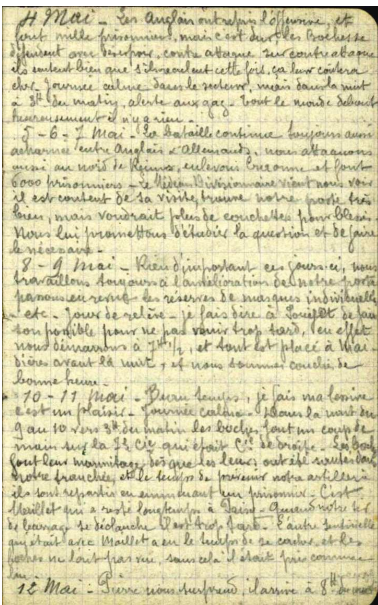 4 Mai - Les Anglais ont repris l'offensive, et
font mille prisonniers, mais c'est dur les Boches se
défendent avec désespoir, contre attaque sur contre attaque
ils sentent bien que s'ils reculent cette fois, ça leur coûtera
cher. Journée calme dans le secteur, mais dans la nuit
à 3h du matin, alerte aux gaz - tout le monde debout
heureusement il n'y a rien.
5 - 6 - 7 Mai - La bataille continue toujours aussi
acharnée entre Anglais & Allemands, nous attaquons
aussi au nord de Reims, enlevons Craonne et font
6000 prisonniers - Le Médecin Divisionnaire vient nous voir
il est content de sa visite, trouve notre poste très
bien, mais voudrait plus de couchettes pour blessés.
Nous lui promettons d'étudier la question et de faire
le nécessaire.
8 - 9 Mai - Rien d'important ces jours-ci, nous
travaillons toujours à l'amélioration de notre poste
passons en revue les réserves de masques individuels
etc - Jour de relève - Je fais dire à de faire
son possible pour ne pas venir trop tard, en effet
nous démarrons à 7h 1/2, et tout est placé à
avant la nuit, et nous sommes couchés de
bonne heure.
10 - 11 Mai - Beau temps, je fais ma lessive
c'est un plaisir - Journée calme - Dans la nuit du
9 au 10 vers 3h du matin les boches font un coup de
main sur la 23 Cie qui était Cie de droite - Les Boches
font leur marmitage, dès que les leurs ont été sautés dans
notre tranchée, et le temps de prévenir notre artillerie
ils sont repartis en emmenant un prisonnier - C'est
Meillet qui a resté longtemps à - Quand notre tir
de barrage se déclanche il est trop tard - L'autre sentinelle
qui était avec Maillet a eu le temps de se cacher et les
boches ne l'ont pas vue, sans cela il était pris comme
lui.
12 Mai - Pierre nous surprend, il arrive à 8h du